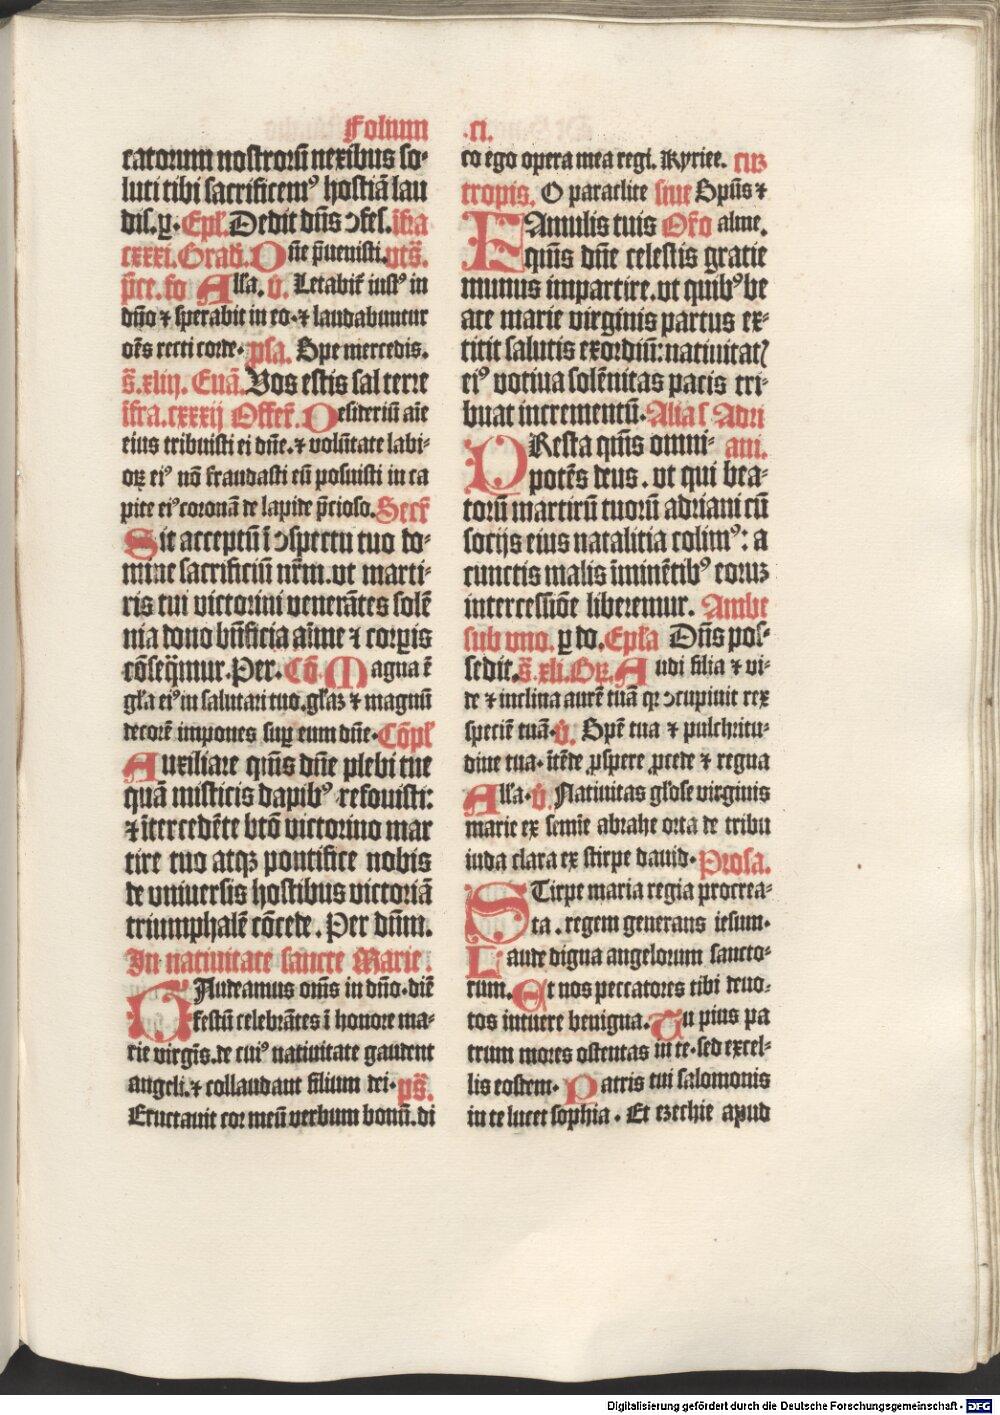 Folium .ci.
catorum nostrorū nexibus so-
luti tibi sacrificemꝰ hostiā lau
dis. ꝑ. Epl̄. Dedit dn̄s ↄfes. īfra
cxxxi. Grad̄. Dn̄e p̄uenisti. vts̄.
p̄ce. fo Alla. v̄. Letabit̄ iustꝰ in
dn̄o ⁊ sperabit in eo. ⁊ laudabuntur
oēs recti corde. psa. Spe mercedis.
s̄. xliij. Euā. Vos estis sal terre
īfra. cxxxij Offer̄. Desideriū aīe
eius tribuisti ei dn̄e. ⁊ volūtate labi-
oꝝ eiꝰ nō fraudasti eū posuisti in ca
pite eiꝰ coronā de lapide p̄cioso. Secr̄
Sit acceptū ī ↄspectu tuo do-
mine sacrificiū nr̄m. vt marti-
ris tui victorini venerātes solē
nia dono bn̄ficia aīme ⁊ corꝑis
cōseq̄mur. Per. Cō. Magna ē
gl̄a eiꝰ in salutari tuo. gl̄aꝫ ⁊ magnū
decorē impones suꝑ eum dn̄e. Cōpl̄
Auxiliare qm̄s dn̄e plebi tue
quā misticis dapibꝰ refouisti:
⁊ ītercedēte btō victorino mar
tire tuo atqꝫ pontifice nobis
de vniuersis hostibus victoriā
triumphalē cōcede. Per dn̄m.
In natiuitate sancte Marie.
Gaudeamus om̄s in dn̄o. diē
festū celebrātes ī honore ma-
rie virgīs. de cuiꝰ natiuitate gaudent
angeli. ⁊ collaudant filium dei. ps̄.
Eructauit cor meū verbum bonū. di
co ego opera mea regi. Kyriee. cuꝫ
tropis. O paraclite siue Spūs ⁊
FAmulis tuis Or̄o alme.
qm̄s dn̄e celestis gratie
munus impartire. vt quibꝰ be
ate marie virginis partus ex-
titit salutis exordiū: natiuitatꝭ
eiꝰ votiua solēnitas pacis tri-
buat incrementū. Alias Adri
PResta qm̄s omni- ani.
potēs deus. vt qui bea-
torū martirū tuorū adriani cū
socijs eius natalitia colimꝰ: a
cunctis malis īminētibꝰ eoruꝫ
intercessiōe liberemur. Ambe
sub vno. ꝑ do. Epl̄a Dn̄s pos-
sedit. s̄. xli. Gr̄. Audi filia ⁊ vi-
de ⁊ inclina aurē tuā qꝛ ↄcupiuit rex
speciē tuā. v̄. Spē tua ⁊ pulchritu-
dine tua. ītēde ꝓspere ꝓcede ⁊ regna
Alla. v̄. Natiuitas gl̄ose virginis
marie ex semīe abrahe orta de tribu
iuda clara ex stirpe dauid. Prosa.
STirpe maria regia procrea-
ta. regem generans iesum.
Laude digna angelorum sancto-
rum. Et nos peccatores tibi deuo-
tos intuere benigna. Tu pius pa
trum mores ostentas in te. sed excel-
lis eosdem. Patris tui salomonis
in te lucet sophia. Et ezechie apud
Digitalisierung gefördert durch die Deutsche Forschungsgemeinschaft - DFG